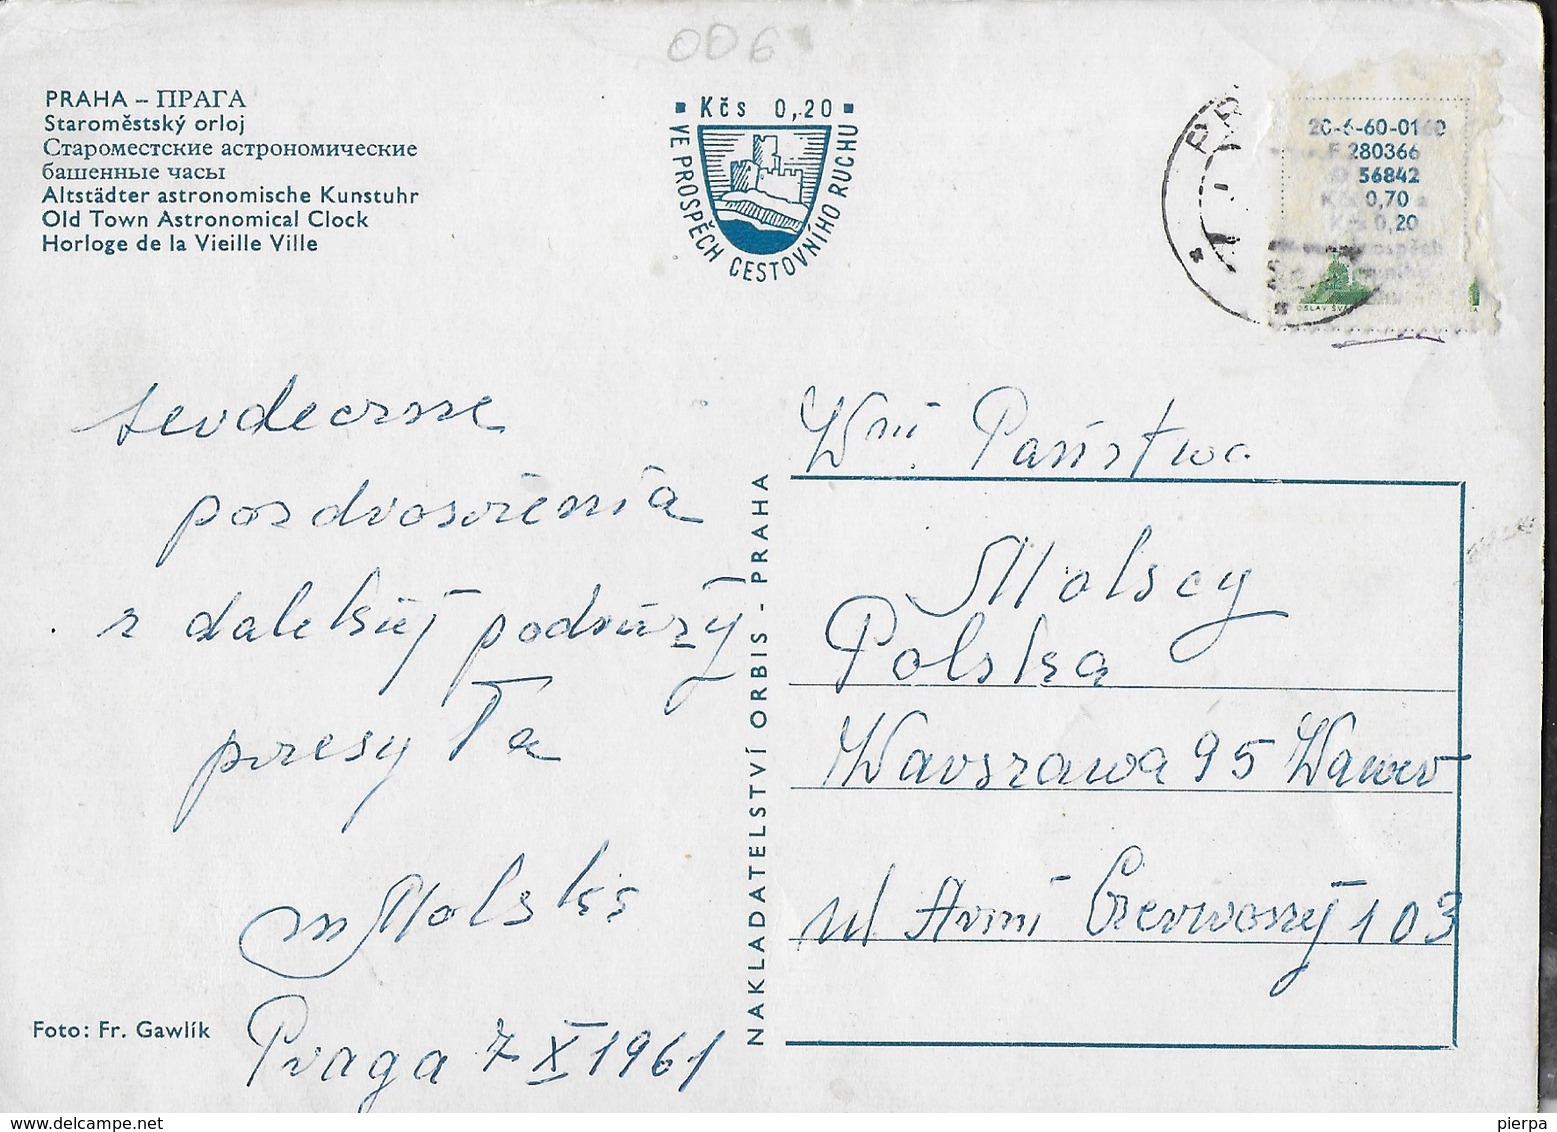 006
PRAHA – ПРАГА
Staroměstský orloj
Староместские астрономические
башенные часы
Altstädter astronomische Kunstuhr
Old Town Astronomical Clock
Horloge de la Vieille Ville
Kčs 0,20
VE PROSPĚCH CESTOVNÍHO RUCHU
PR
20-6-60-0160
F 280366
56842
0,70
Kčs 0,20
serdeczne
pozdrowienia
z dalekiej podróży
przesyła
M Molski
Praga 7 X 1961
Foto: Fr. Gawlík
NAKLADATELSTVÍ ORBIS - PRAHA
Wni. Państwo
Molscy
Polska
Warszawa 95 Wawer
ul Armi Czerwonej 103
pierpa
delcampe.net